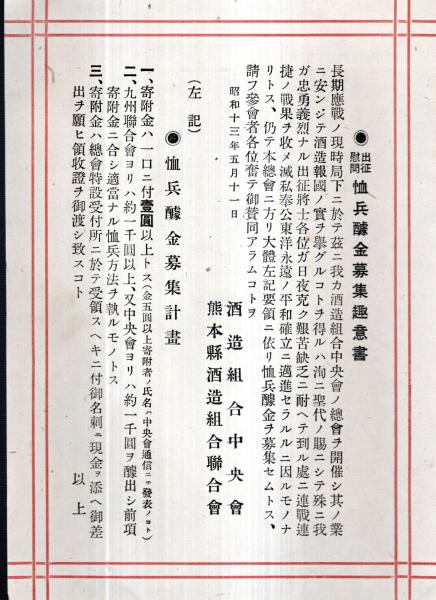 ●出征慰問恤兵醵金募集趣意書
長期應戰ノ現時局下ニ於テ茲ニ我カ酒造組合中央會ノ總會ヲ開催シ其ノ業
ニ安ンジテ酒造報國ノ實ヲ擧グルコトヲ得ルハ洵ニ聖代ノ賜ニシテ殊ニ我
ガ忠勇義烈ナル出征將士各位ガ日夜克ク艱苦缺乏ニ耐ヘテ到ル處ニ連戰連
捷ノ戰果ヲ收メ滅私奉公東洋永遠ノ平和確立ニ邁進セラルルニ因ルモノナ
リトス、仍テ本總會ニ方リ大體左記要領ニ依リ恤兵醵金ヲ募集セムトス、
請フ參會者各位奮テ御贊同アラムコトヲ
昭和十三年五月十一日
酒造組合中央會
熊本縣酒造組合聯合會
(左記)
●恤兵醵金募集計畫
一、寄附金ハ一口ニ付壹圓以上トス(金五圓以上寄附者ノ氏名ハ中央會通信ニテ發表ノコト)
二、九州聯合會ヨリハ約一千圓以上、又中央會ヨリハ約一千圓ヲ醵出シ前項
寄附金ニ合シ適當ナル恤兵方法ヲ執ルモノトス
三、寄附金ハ總會特設受付所ニ於テ受領スヘキニ付御名刺ニ現金ヲ添ヘ御差
出ヲ願ヒ領收證ヲ御渡シ致スコト
以上